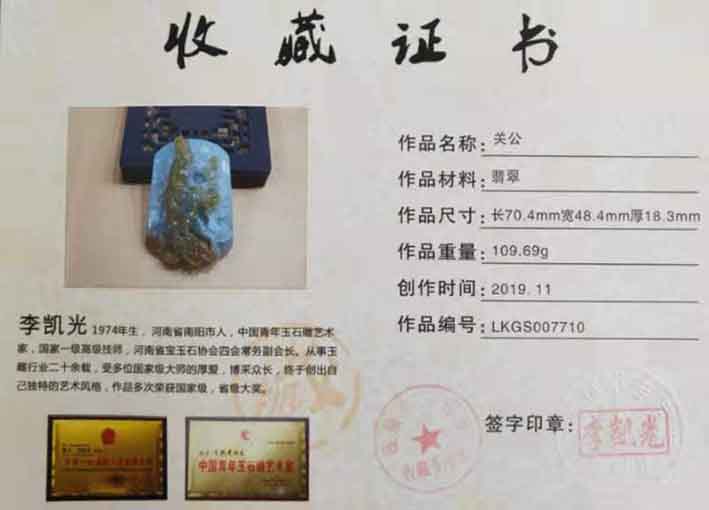 收藏证书
作品名称：关公
作品材料：翡翠
作品尺寸：长70.4mm宽48.4mm厚18.3mm
作品重量：109.69g
创作时间：2019.11
作品编号：LKGS007710
李凯光 1974年生，河南省南阳市人，中国青年玉石雕艺术
家，国家一级高级技师，河南省宝玉石协会四会常务副会长。从事玉
雕行业二十余载，受多位国家级大师的厚爱，博采众长，终于创出自
己独特的艺术风格，作品多次荣获国家级，省级大奖。
中国青年玉石雕艺术家
签字印章：李凯光